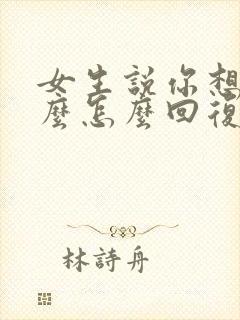 女生説你想
麼怎麼回復
林詩舟